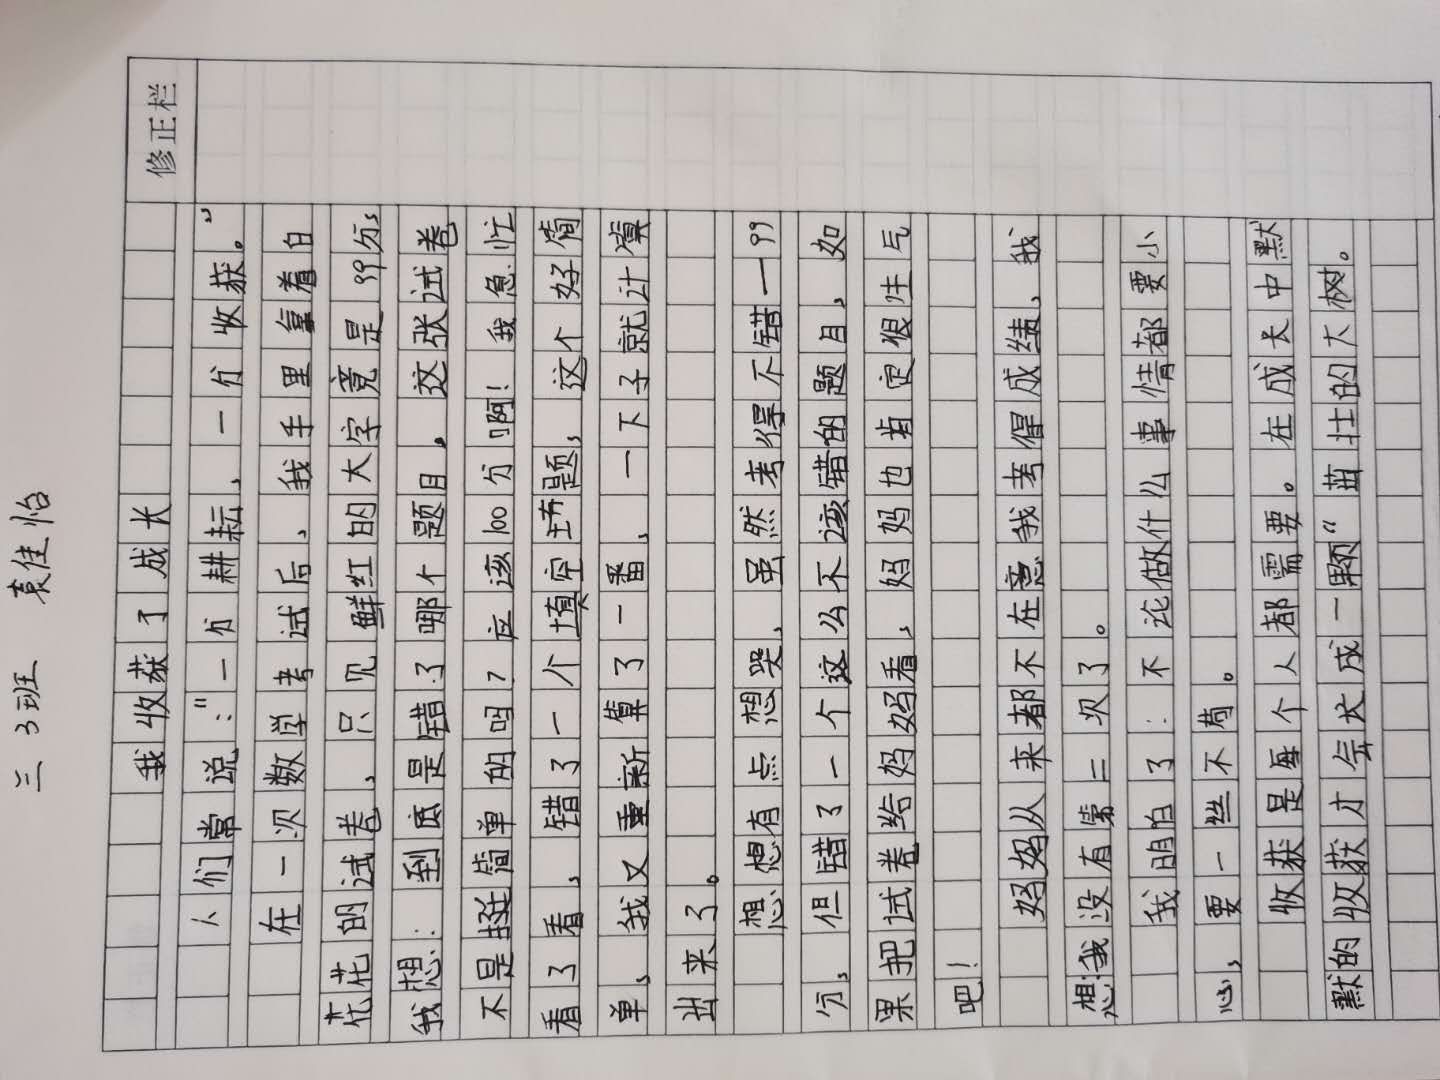 三 3班 袁佳怡
修正栏
我收获了成长
人们常说:"一分耕耘,一分收获。"
在一次数学考试后,我手里拿着白
花花的试卷,只见鲜红的大字竟是99分,
我想:到底是错了哪个题目,这张试卷
不是挺简单的吗?应该100分啊!我急忙
看了看,错了一个填空填题,这个好简
单,我又重新算了一番,一下子就计算
出来了。
想想有点想哭,虽然考得不错—99
分,但错了一个这么不该错的题目,如
果把试卷给妈妈看,妈妈也肯定很生气
吧!
妈妈从来都不在意我考得成绩,我
想我没有第二次了。
我明白了:不论做什么事情都要小
心,要一丝不苟。
收获是每个人都需要。在成长中默
默的收获才会长成一颗"茁壮的大树。